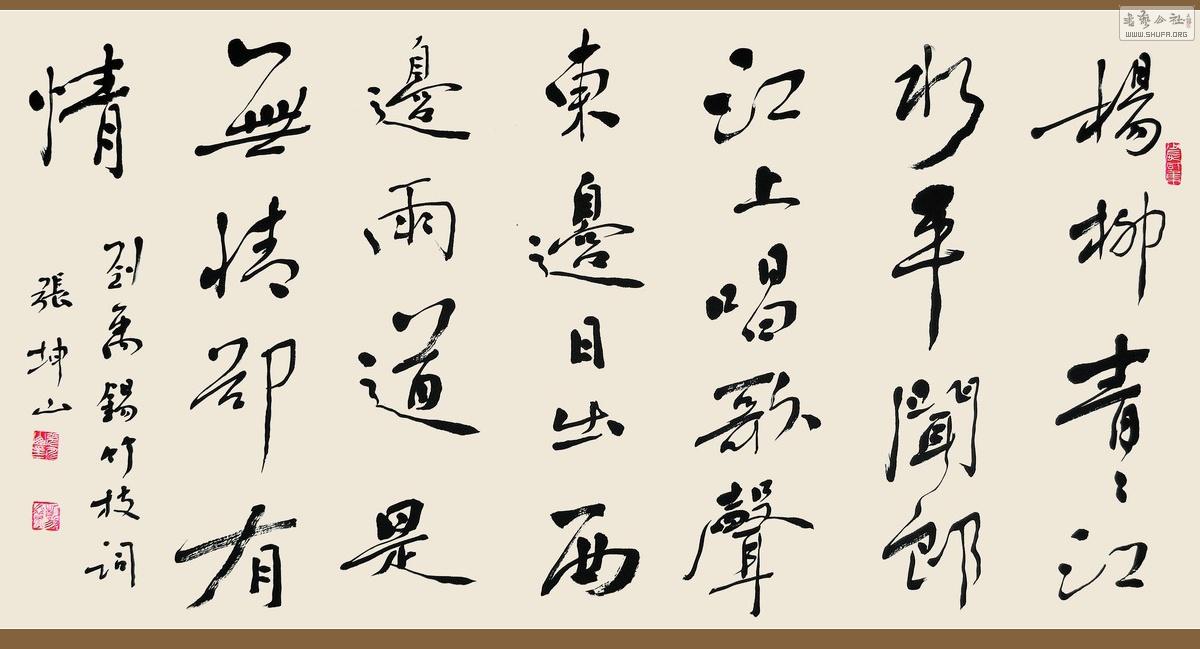 楊柳青〻江
水平聞郎
江上唱歌聲
東邊日出西
邊雨道是
無情卻有
情
劉禹錫竹枝詞
張坤山
WWW.SHUFA.ORG